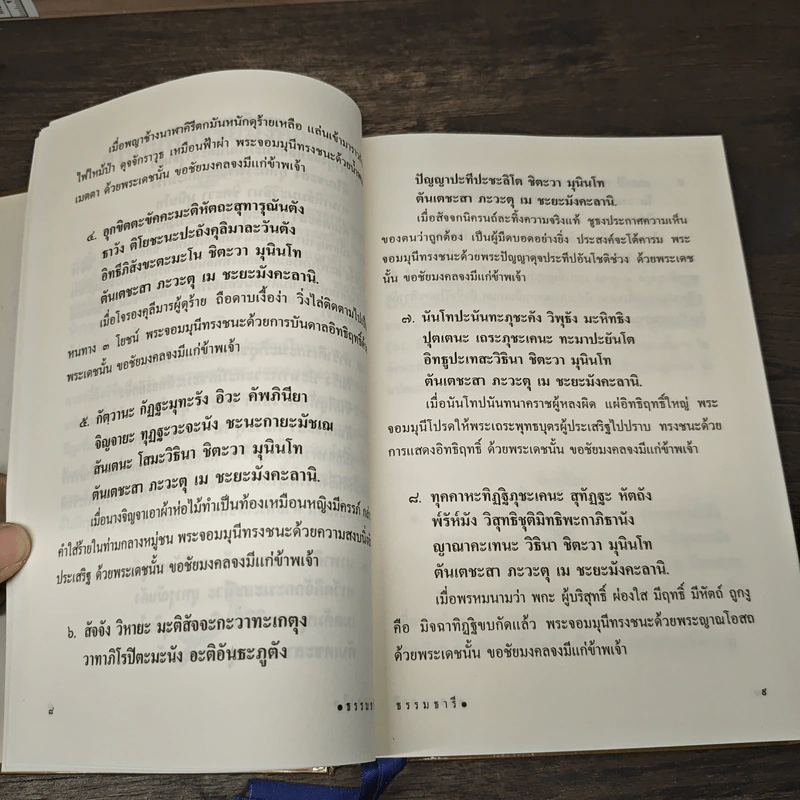 เมื่อพญาช้างนาฬาคิรีตกมันหนักดุร้ายเหลือ แล่นเข้ามาราว
ไฟไหม้ป่า ดุจจักราวุธ เหมือนฟ้าผ่า พระจอมมุนีทรงชนะด้วยน้ำ
เมตตา ด้วยพระเดชนั้น ขอชัยมงคลจงมีแก่ข้าพเจ้า
๔. อุกขิตตะขัคคะมะติหัตถะสุทารุณันตัง
ธาวัง ติโยชะนะปะถังคุลิมาละวันตัง
อิทธีภิสังขะตะมะโน ชิตะวา มุนินโท
ตันเตชะสา ภะวะตุ เม ชะยะมังคะลานิ.
เมื่อโจรองคุลีมารผู้ดุร้าย ถือดาบเงื้อง่า วิ่งไล่ติดตามไป
หนทาง ๓ โยชน์ พระจอมมุนีทรงชนะด้วยการบันดาลอิทธิฤทธิ์
พระเดชนั้น ขอชัยมงคลจงมีแก่ข้าพเจ้า
๕. กัตฺวานะ กัฏฐะมุทะรัง อิวะ คัพภินียา
จิญจายะ ทุฏฐะวะจะนัง ชะนะกายะมัชเฌ
สันเตนะ โสมะวิธินา ชิตะวา มุนินโท
ตันเตชะสา ภะวะตุ เม ชะยะมังคะลานิ.
เมื่อนางจิญจาเอาผ้าห่อไม้ทำเป็นท้องเหมือนหญิงมีครรภ์
คำใส่ร้ายในท่ามกลางหมู่ชน พระจอมมุนีทรงชนะด้วยความสงบนิ่ง
ประเสริฐ ด้วยพระเดชนั้น ขอชัยมงคลจงมีแก่ข้าพเจ้า
๖. สัจจัง วิหายะ มะติสัจจะกะวาทะเกตุง
วาทาภิโรปิตะมะนัง อะติอันธะภูตัง
๘
●ธรรมธ
ปัญญาปะทีปะชะลิโต ชิตะวา มุนินโท
ตันเตชะสา ภะวะตุ เม ชะยะมังคะลานิ.
เมื่อสัจจกนิครนถ์ละทิ้งความจริงแท้ ชูธงประกาศความเห็น
ของตนว่าถูกต้อง เป็นผู้มืดบอดอย่างยิ่ง ประสงค์จะโต้คารม พระ
จอมมุนีทรงชนะด้วยพระปัญญาดุจประทีปอันโชติช่วง ด้วยพระเดช
นั้น ขอชัยมงคลจงมีแก่ข้าพเจ้า
๗. นันโทปะนันทะภุชะคัง วิพุธัง มะหิทธิง
ปุตเตนะ เถระภุชะเคนะ ทะมาปะยันโต
อิทธูปะเทสะวิธินา ชิตะวา มุนินโท
ตันเตชะสา ภะวะตุ เม ชะยะมังคะลานิ.
เมื่อนันโทปนันทนาคราชผู้หลงผิด แผ่อิทธิฤทธิ์ใหญ่ พระ
จอมมุนีโปรดให้พระเถระพุทธบุตรผู้ประเสริฐไปปราบ ทรงชนะด้วย
การแสดงอิทธิฤทธิ์ ด้วยพระเดชนั้น ขอชัยมงคลจงมีแก่ข้าพเจ้า
๘. ทุคคาหะทิฏฐิภุชะเคนะ สุทัฏฐะ หัตถัง
พ์รัห์มัง วิสุทธิชุติมิทธิพะกาภิธานัง
ญาณาคะเทนะ วิธินา ชิตะวา มุนินโท
ตันเตชะสา ภะวะตุ เม ชะยะมังคะลานิ.
เมื่อพรหมนามว่า พกะ ผู้บริสุทธิ์ ผ่องใส มีฤทธิ์ มีหัตถ์ ถูกงู
คือ มิจฉาทิฏฐิขบกัดแล้ว พระจอมมุนีทรงชนะด้วยพระญาณโอสถ
ด้วยพระเดชนั้น ขอชัยมงคลจงมีแก่ข้าพเจ้า
ธรรมธารี●
๙